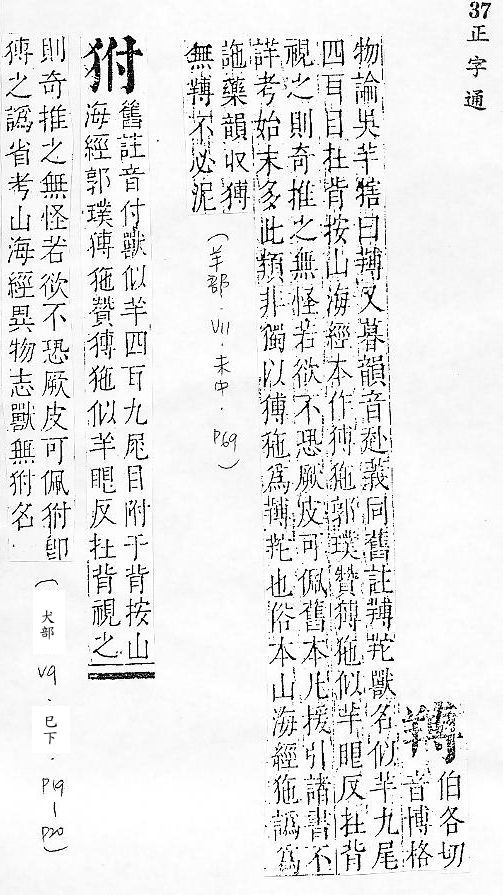 37正字通
伯各切
音博格
物論吳羊犗曰又暮韻音赴義同舊註獸名似羊九尾
四耳目在背按山海經本作猼狏郭璞贊猼狏似羊眼反在背
視之則奇推之無怪若欲不恐厥皮可佩舊本凡援引諸書不
詳考始末多此類非獨以猼狏為也俗本山海經狏譌為
訑藥韻收猼
無不必泥
(羊部．VII．未中．P69)
舊註音付獸似羊四耳九尾目附于背按山
海經郭璞猼狏贊猼狏似羊眼反在背視之
則奇推之無怪若欲不恐厥皮可佩即
猼之譌省考山海經異物志獸無名
(犬部 V9．巳下．P19-P20)